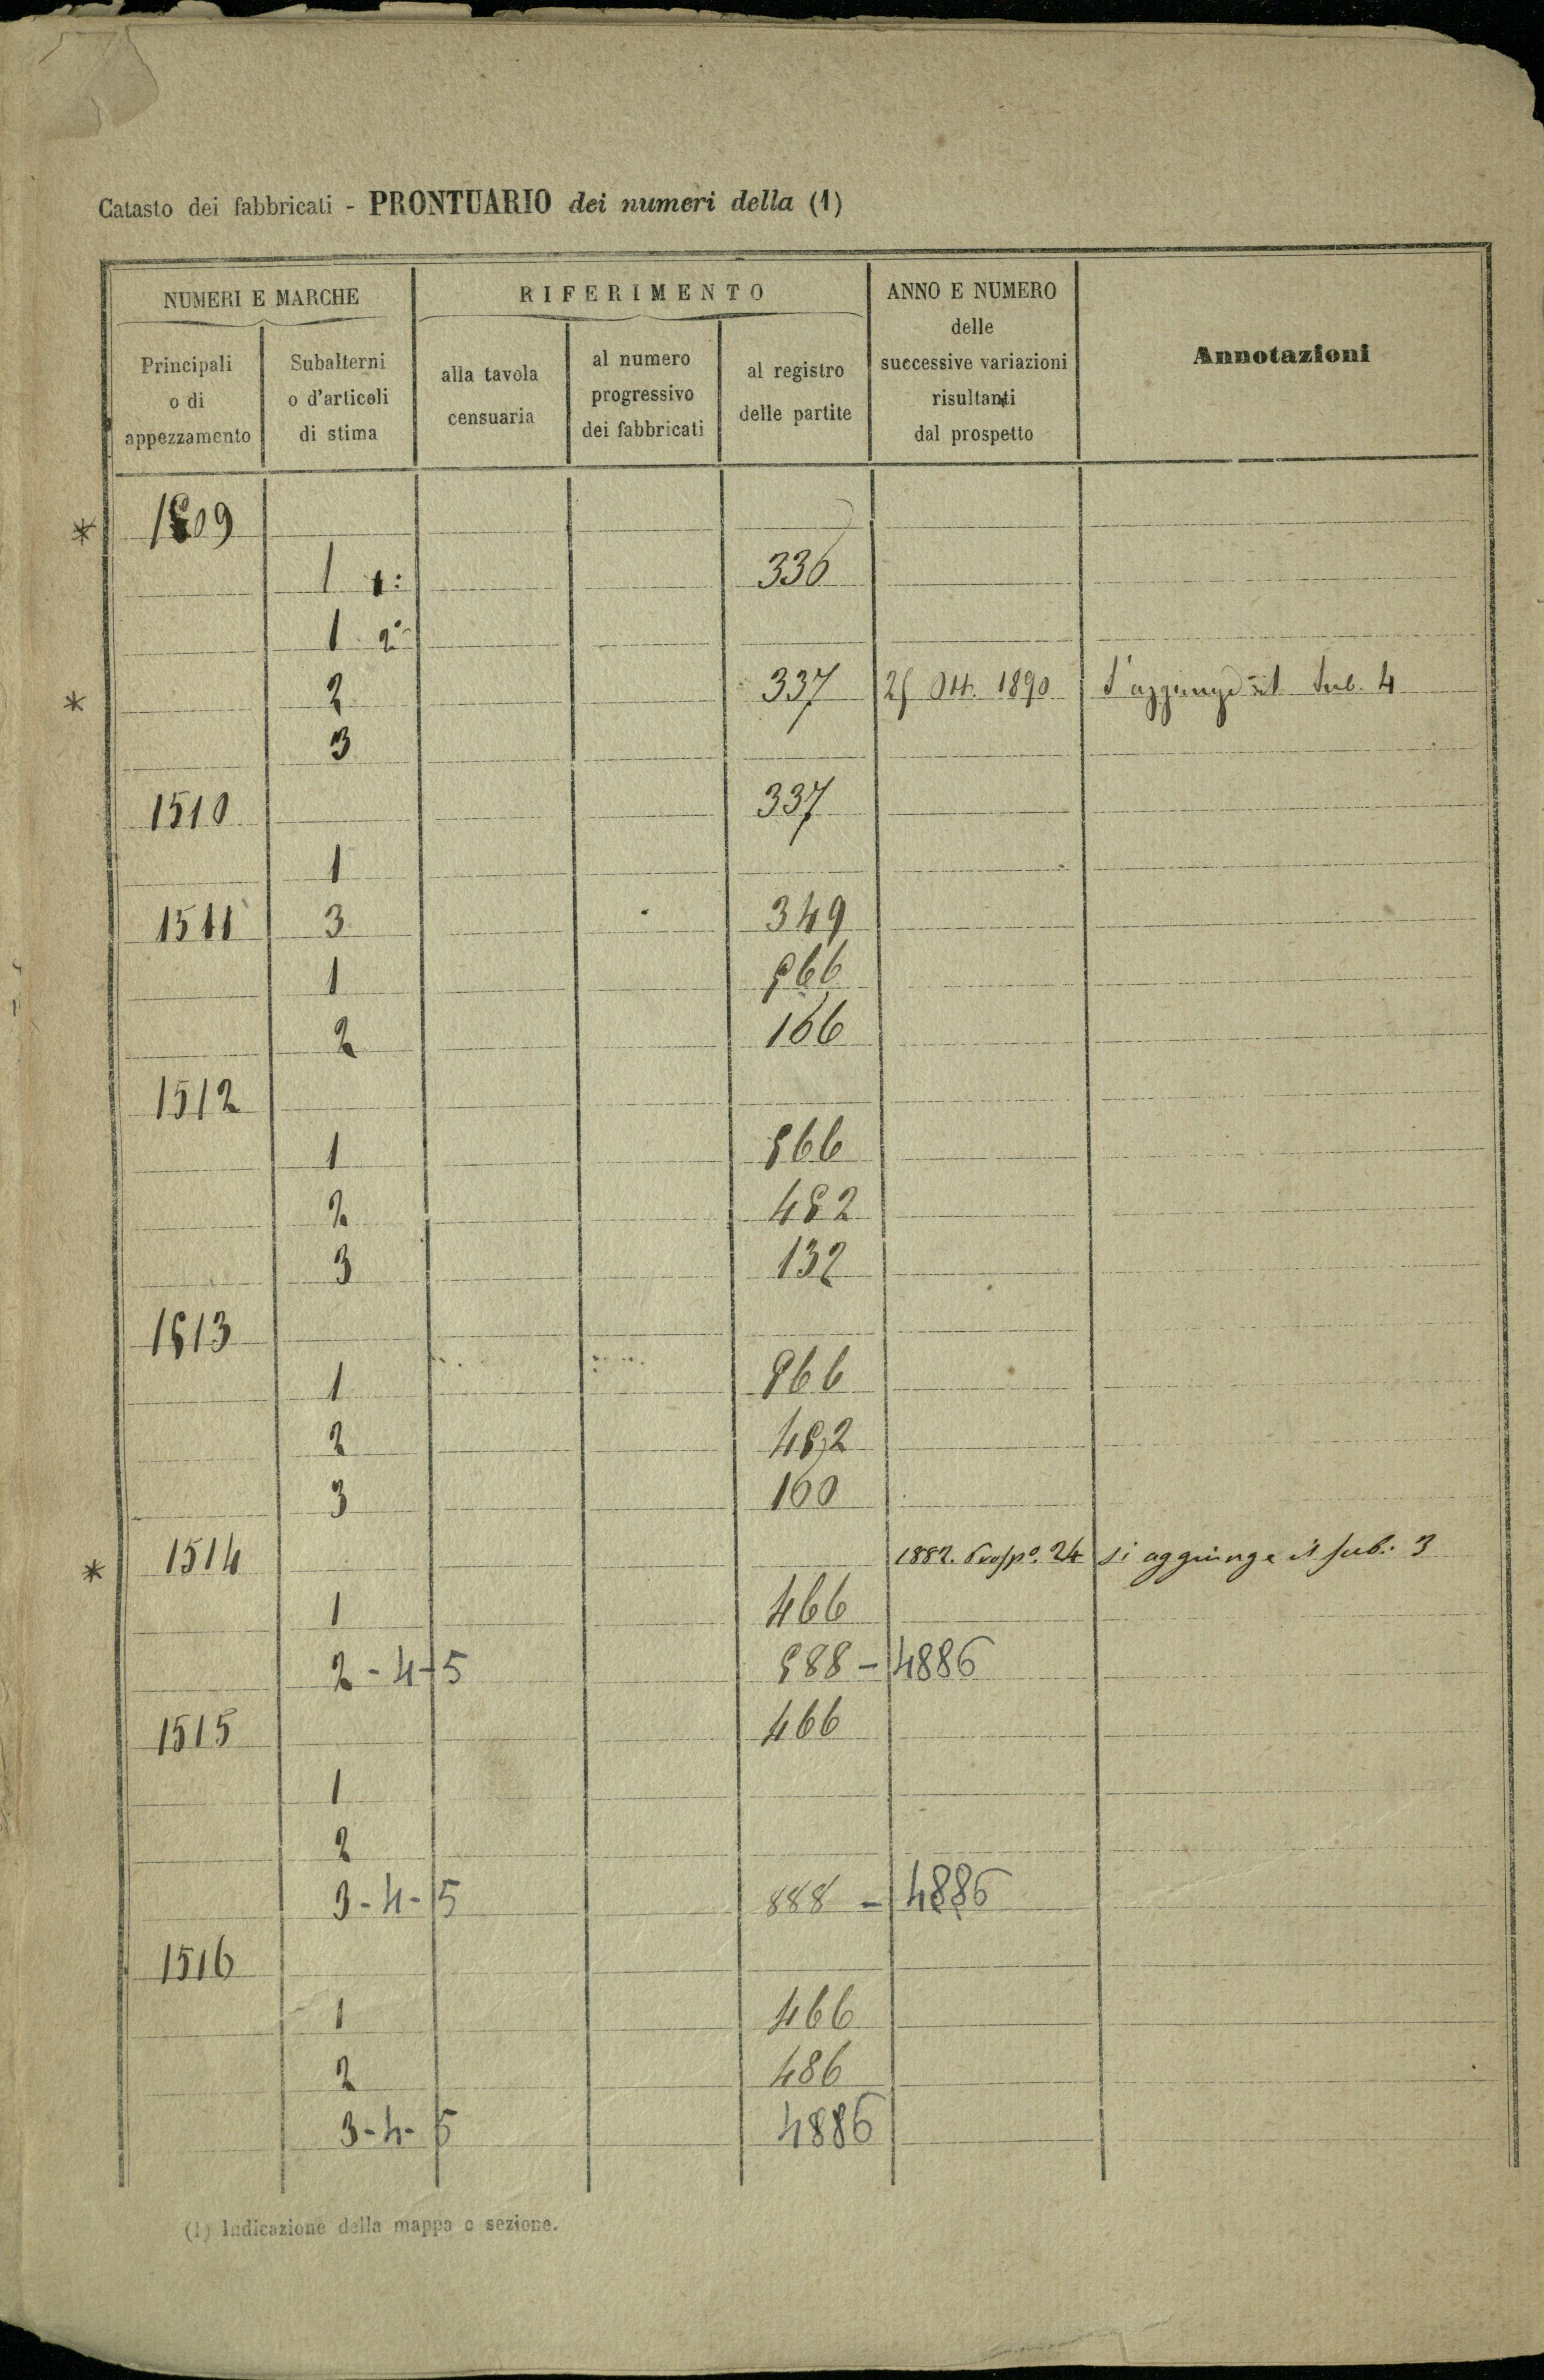 Catasto dei fabbricati - PRONTUARIO dei numeri della (1)
NUMERI E MARCHE
Principali o di appezzamento
Subalterni o d'articoli di stima
RIFERIMENTO
alla tavola censuaria
al numero progressivo dei fabbricati
al registro delle partite
ANNO E NUMERO delle successive variazioni risultanti dal prospetto
Annotazioni
* 1509
1 1: 336
1 2°
* 2 337 25 Ott. 1890 S'aggiunge il Sub. 4
3
1510 337
1
1511 3 349
1 566
2 166
1512
1 566
2 452
3 132
1513
1 566
2 452
3 100
* 1514 1882. Prosp°. 24 si aggiunge il sub: 3
1 466
2 - 4 - 5 588 - 4886
1515 466
1
2
3 - 4 - 5 888 - 4886
1516
1 466
2 486
3 - 4 - 5 4886
(1) Indicazione della mappa o sezione.